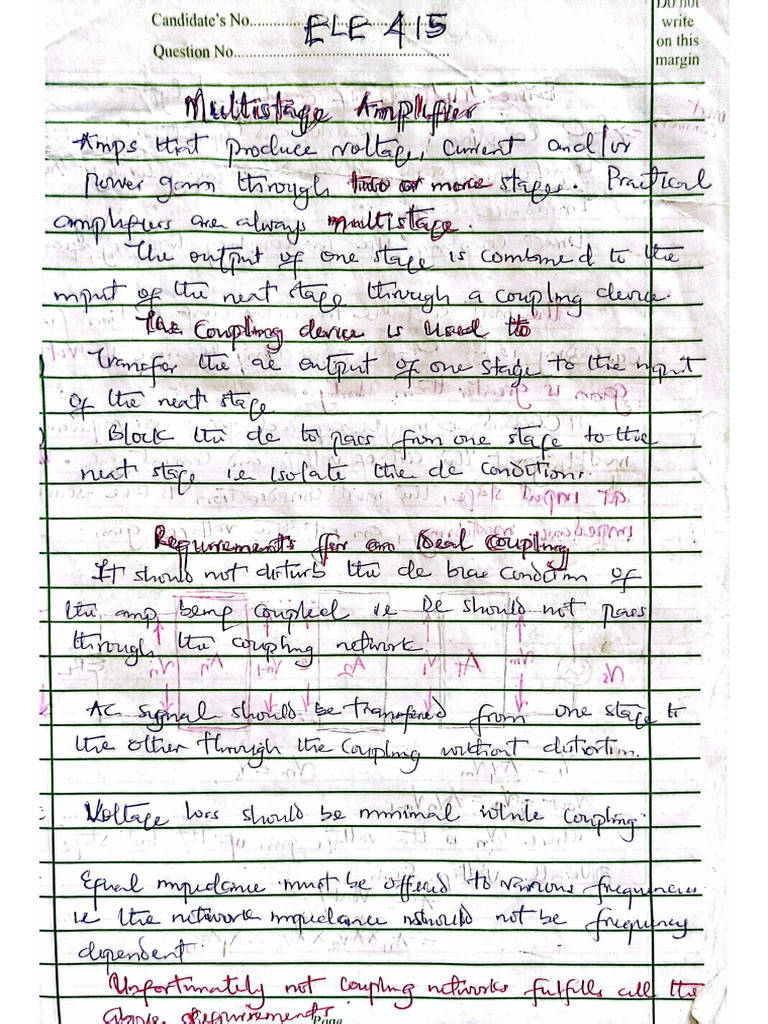 Do not
Candidate's No. ELE 415
write
Question No.
on this
margin
Multistage Amplifier
Amps that produce voltage, current and/or
power gain through two or more stages. Practical
amplifiers are always multistage.
The output of one stage is combined to the
input of the next stage through a coupling device.
The coupling device is used to
Transfer the ac output of one stage to the input
of the next stage
Block the dc to pass from one stage to the
next stage i.e isolate the dc conditions.
Requirements for an Ideal coupling
It should not disturb the dc bias condition of
the amp being coupled i.e DC should not pass
through the coupling network.
AC signal should be transfered from one stage to
the other through the coupling without distortion.
Voltage loss should be minimal while coupling.
Equal impedance must be offered to various frequencies
ie the network impedance should not be frequency
dependent.
Unfortunately not coupling networks fulfills all the
above requirements
Page